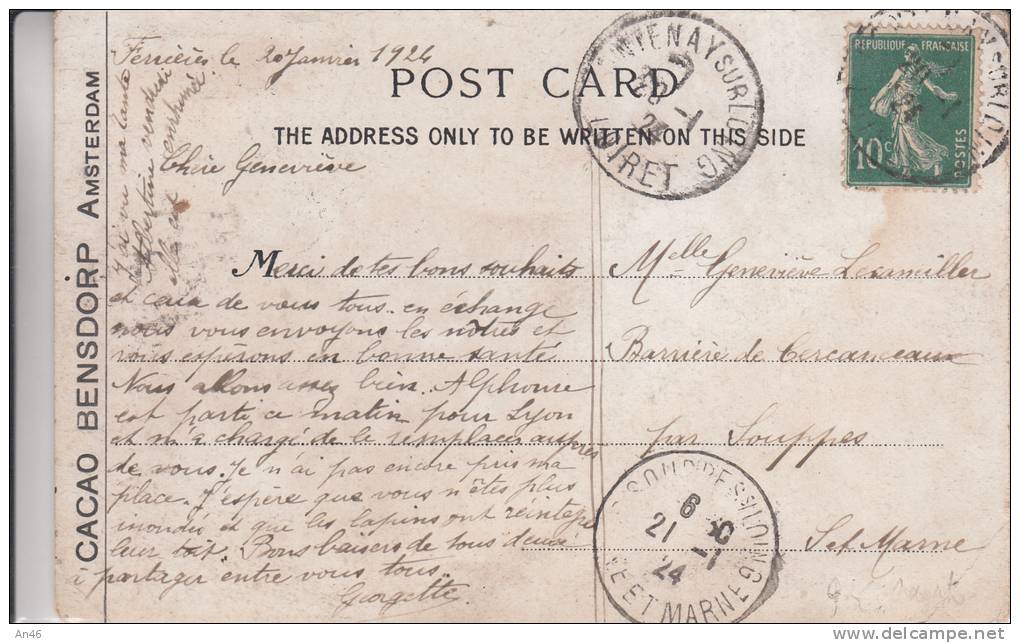 Ferrières le 20 Janvier 1924
POST CARD
THE ADDRESS ONLY TO BE WRITTEN ON THIS SIDE
Chère Geneviève
Merci de tes bons souhaits
et ceux de vous tous. en échange
nous vous envoyons les nôtres et
vous espérons en bonne santé.
Nous allons assez bien. Alphonse
est parti ce matin pour Lyon
et m'a chargé de le remplacer auprès
de vous. Je n'ai pas encore pris ma
place. J'espère que vous n'êtes plus
inondés et que les lapins ont réintégré
leur toit. Bons baisers de tous deux
à partager entre vous tous.
Georgette
J'ai vu ma tante
Albertine vendredi
elle est enrhumée
CACAO BENSDORP AMSTERDAM
Melle Geneviève
Barrière de Cercanceaux
par Souppes
S et Marne
NTENAY SUR LOING
20 -1
24
LOIRET
REPUBLIQUE FRANÇAISE
10c
POSTES
SOUPPES S LOING
6 30
21 -1
24
NE ET MARNE
An46
www.delcampe.net